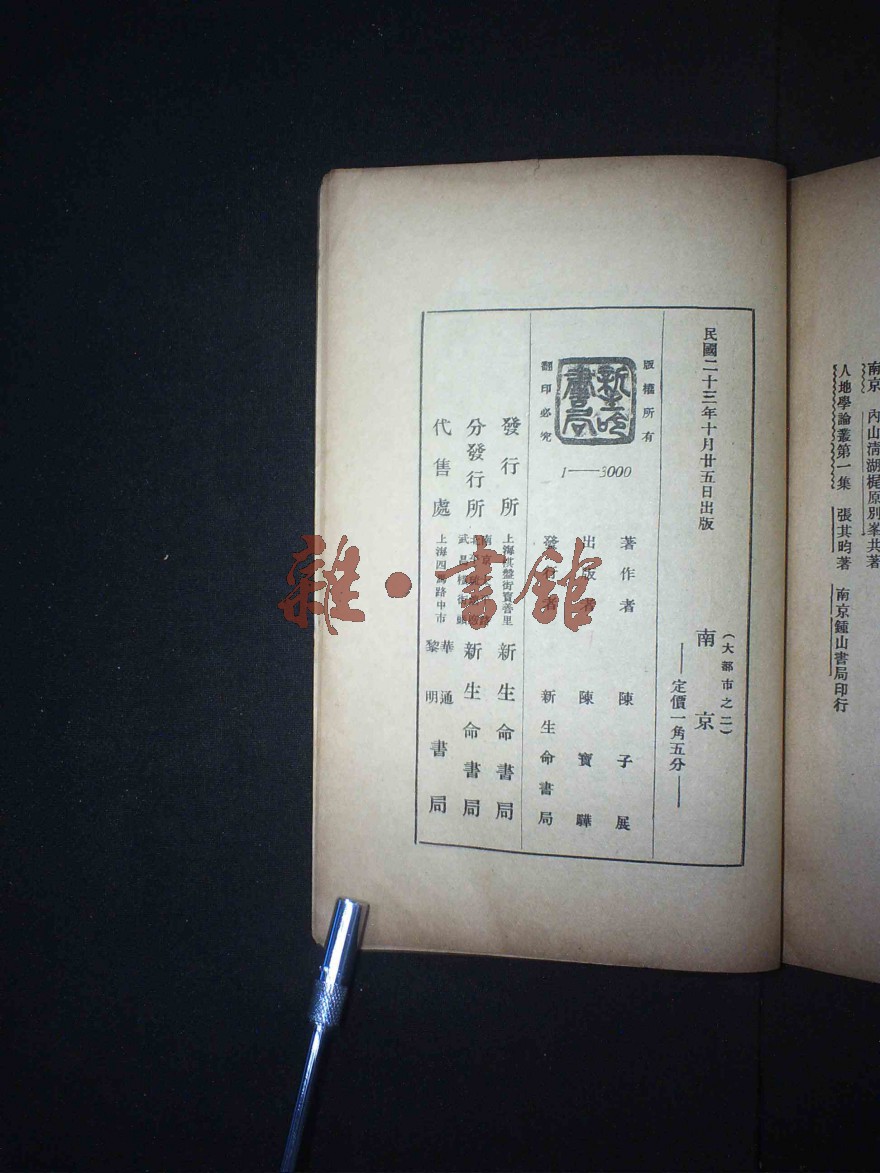 南京　內山清湖梶原別峯共著
人地學論叢第一集　張其昀著　南京鍾山書局印行
民國二十三年十月廿五日出版
(大都市之二)
南京
——定價一角五分——
版權所有
新生命書局
翻印必究
1——3000
著作者　陳子展
出版者　陳寶驊
發行者　新生命書局
發行所　上海棋盤街寶善里　新生命書局
分發行所　南京　新生命書局
代售處　上海四馬路中市　華通　黎明　書局
雜·書館